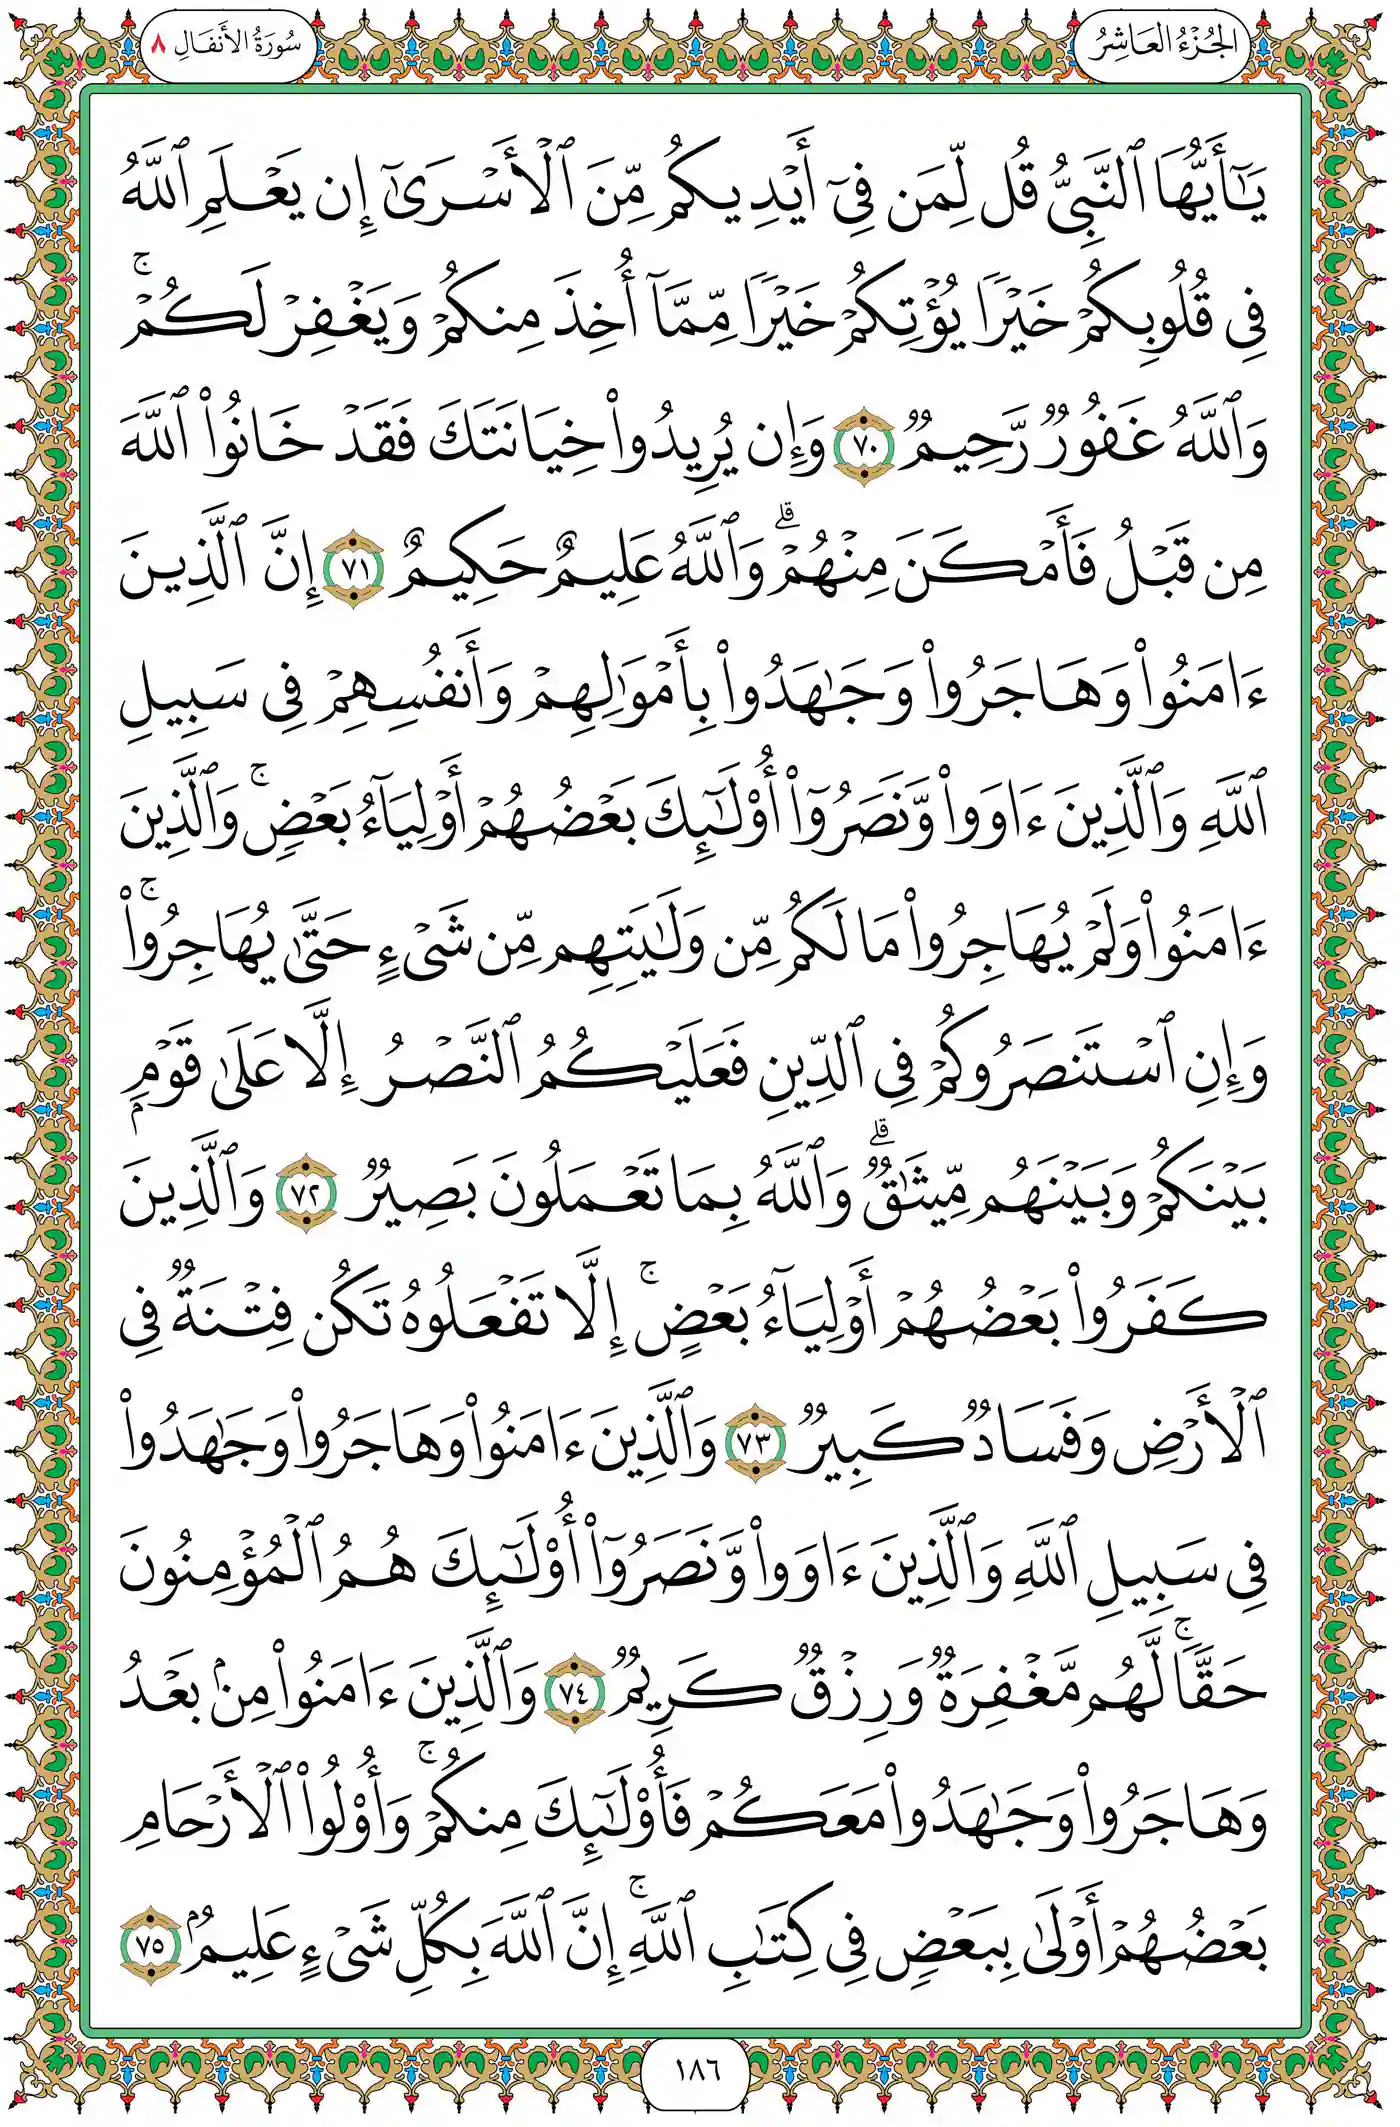 الجُزْءُ العَاشِرُ
سُورَةُ الأَنفَالِ ٨
يَٰٓأَيُّهَا ٱلنَّبِيُّ قُل لِّمَن فِيٓ أَيْدِيكُم مِّنَ ٱلْأَسْرَىٰٓ إِن يَعْلَمِ ٱللَّهُ
فِي قُلُوبِكُمْ خَيْرًا يُؤْتِكُمْ خَيْرًا مِّمَّآ أُخِذَ مِنكُمْ وَيَغْفِرْ لَكُمْۚ
وَٱللَّهُ غَفُورٌ رَّحِيمٌ ٧٠ وَإِن يُرِيدُوا۟ خِيَانَتَكَ فَقَدْ خَانُوا۟ ٱللَّهَ
مِن قَبْلُ فَأَمْكَنَ مِنْهُمْۗ وَٱللَّهُ عَلِيمٌ حَكِيمٌ ٧١ إِنَّ ٱلَّذِينَ
ءَامَنُوا۟ وَهَاجَرُوا۟ وَجَٰهَدُوا۟ بِأَمْوَٰلِهِمْ وَأَنفُسِهِمْ فِي سَبِيلِ
ٱللَّهِ وَٱلَّذِينَ ءَاوَوا۟ وَّنَصَرُوٓا۟ أُو۟لَٰٓئِكَ بَعْضُهُمْ أَوْلِيَآءُ بَعْضٍۚ وَٱلَّذِينَ
ءَامَنُوا۟ وَلَمْ يُهَاجِرُوا۟ مَا لَكُم مِّن وَلَٰيَتِهِم مِّن شَيْءٍ حَتَّىٰ يُهَاجِرُوا۟ۚ
وَإِنِ ٱسْتَنصَرُوكُمْ فِي ٱلدِّينِ فَعَلَيْكُمُ ٱلنَّصْرُ إِلَّا عَلَىٰ قَوْمِۭ
بَيْنَكُمْ وَبَيْنَهُم مِّيثَٰقٌۗ وَٱللَّهُ بِمَا تَعْمَلُونَ بَصِيرٌ ٧٢ وَٱلَّذِينَ
كَفَرُوا۟ بَعْضُهُمْ أَوْلِيَآءُ بَعْضٍۚ إِلَّا تَفْعَلُوهُ تَكُن فِتْنَةٌ فِي
ٱلْأَرْضِ وَفَسَادٌ كَبِيرٌ ٧٣ وَٱلَّذِينَ ءَامَنُوا۟ وَهَاجَرُوا۟ وَجَٰهَدُوا۟
فِي سَبِيلِ ٱللَّهِ وَٱلَّذِينَ ءَاوَوا۟ وَّنَصَرُوٓا۟ أُو۟لَٰٓئِكَ هُمُ ٱلْمُؤْمِنُونَ
حَقًّاۚ لَّهُم مَّغْفِرَةٌ وَرِزْقٌ كَرِيمٌ ٧٤ وَٱلَّذِينَ ءَامَنُوا۟ مِنۢ بَعْدُ
وَهَاجَرُوا۟ وَجَٰهَدُوا۟ مَعَكُمْ فَأُو۟لَٰٓئِكَ مِنكُمْۚ وَأُو۟لُوا۟ ٱلْأَرْحَامِ
بَعْضُهُمْ أَوْلَىٰ بِبَعْضٍ فِي كِتَٰبِ ٱللَّهِۚ إِنَّ ٱللَّهَ بِكُلِّ شَيْءٍ عَلِيمٌۢ ٧٥
١٨٦